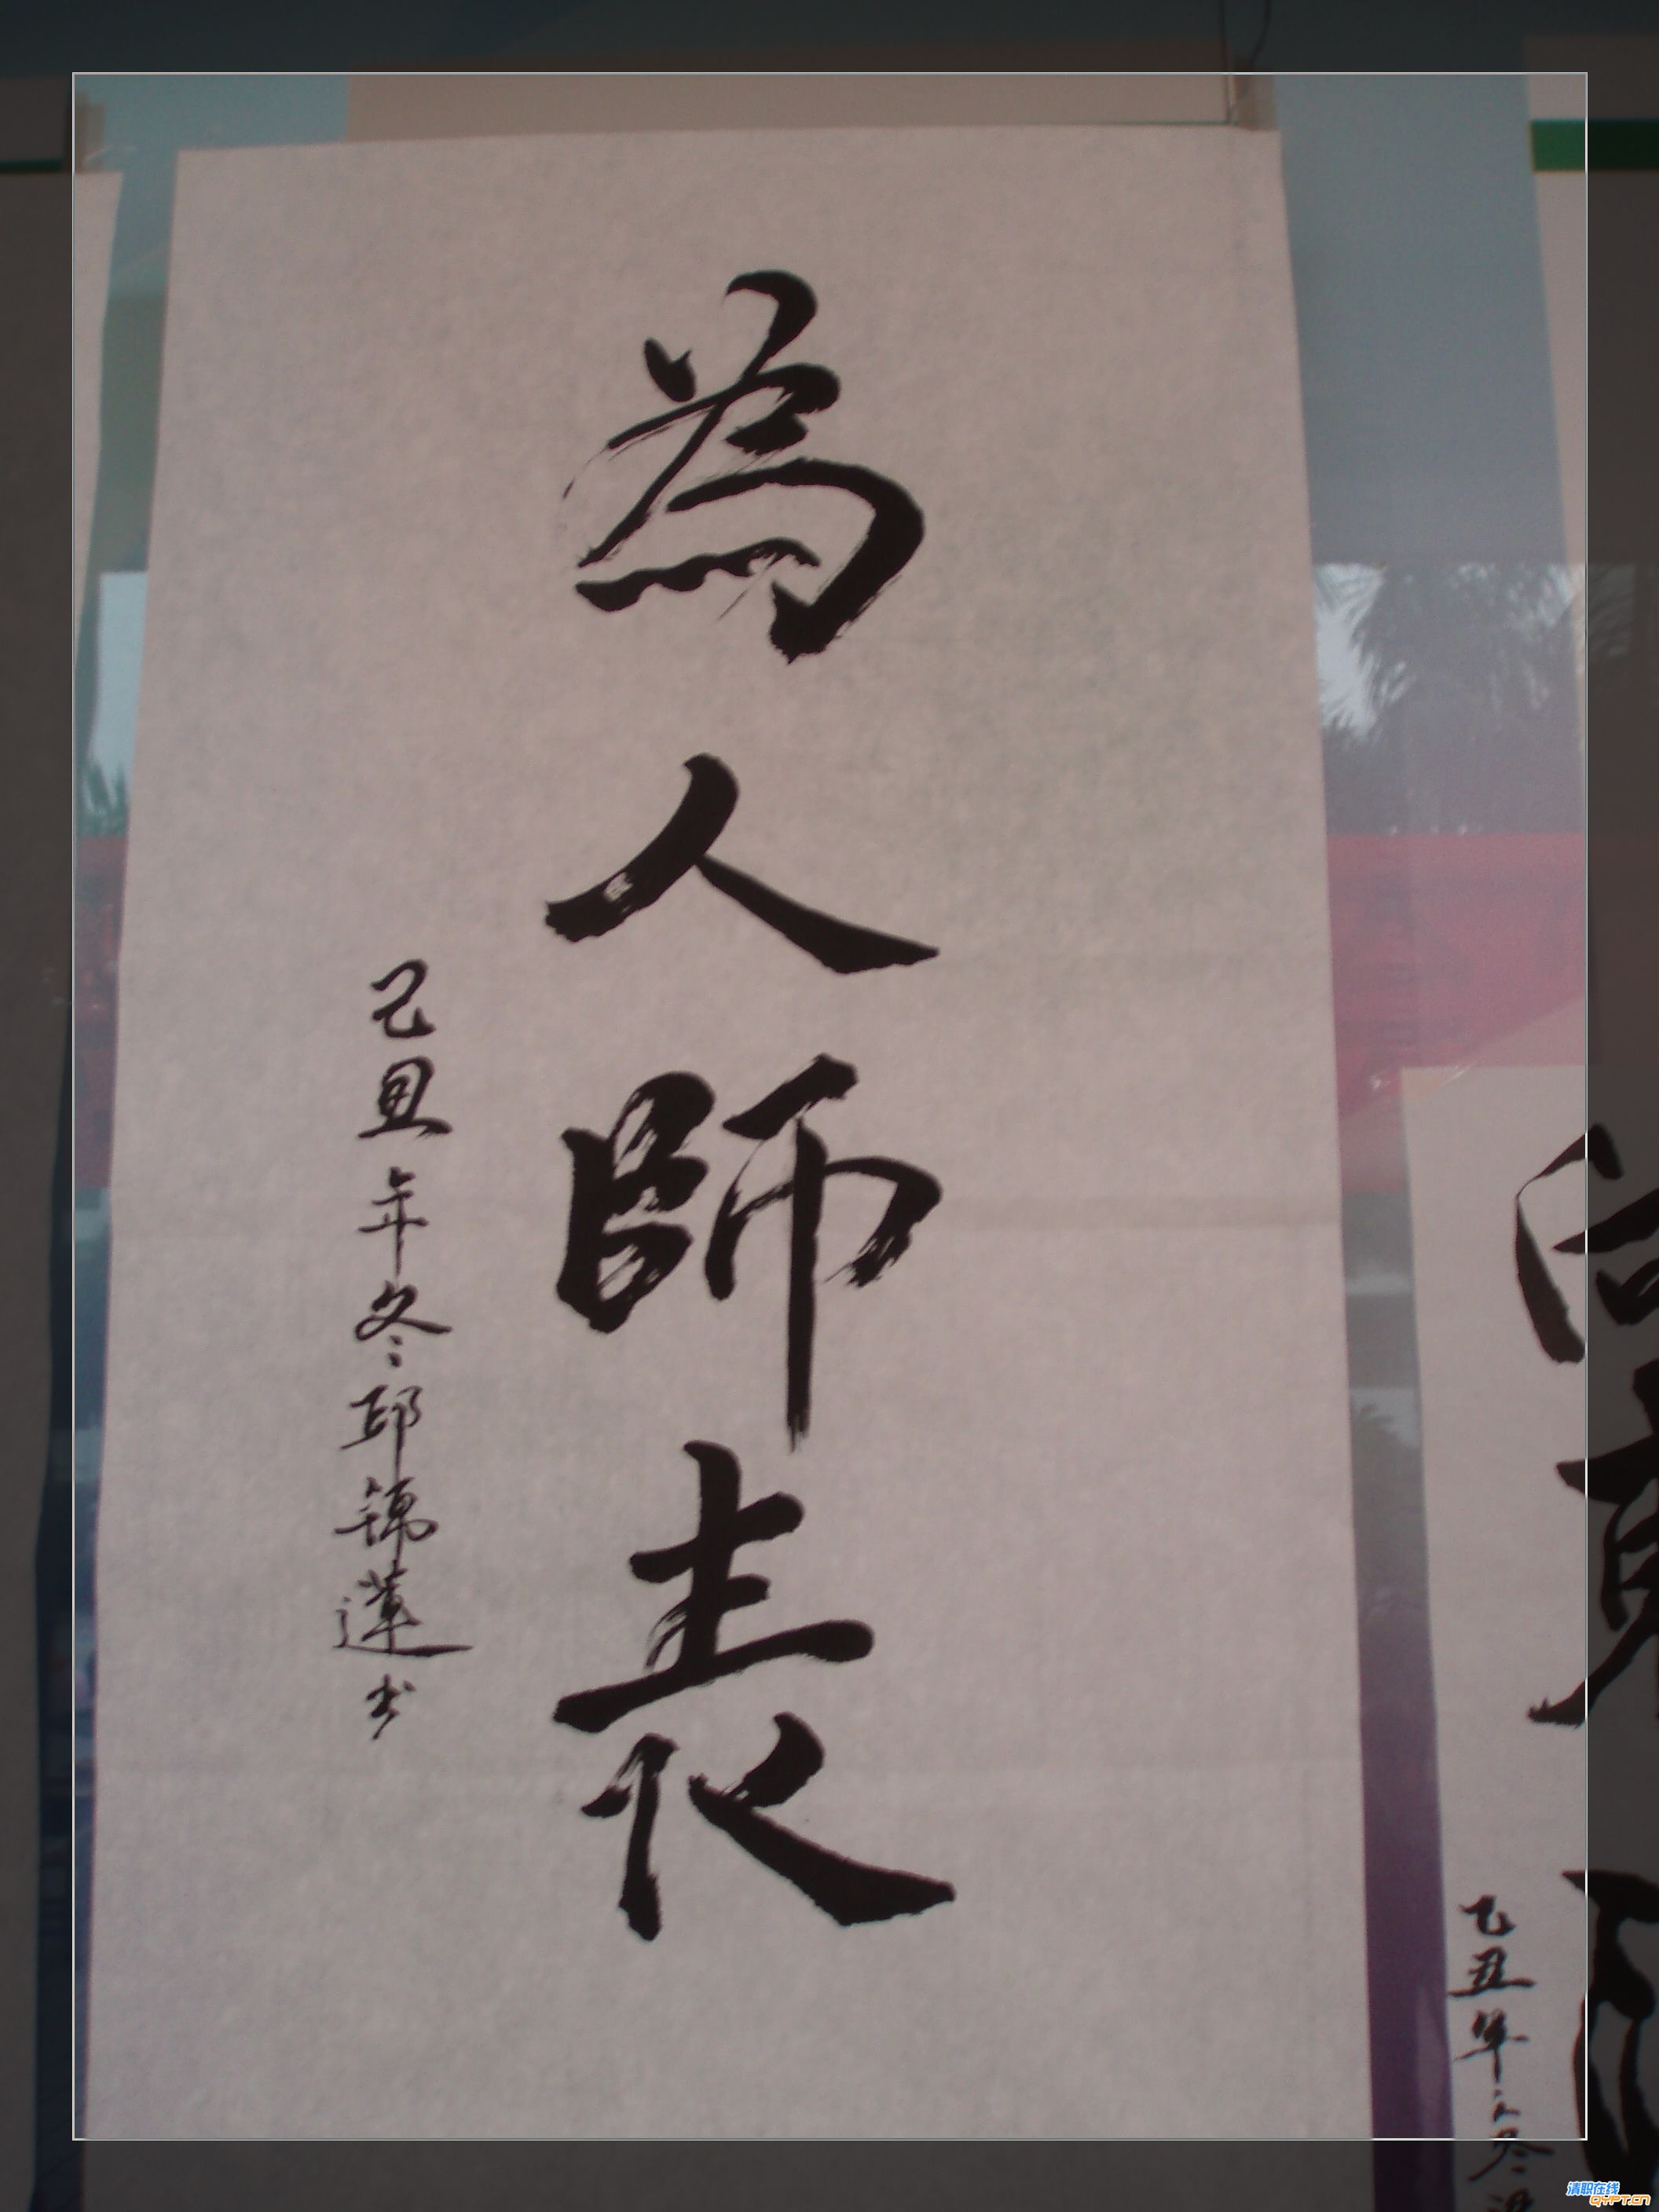 為人師表
己丑年冬邱锦蓮书
己丑年冬
清职在线
QYPT.CN